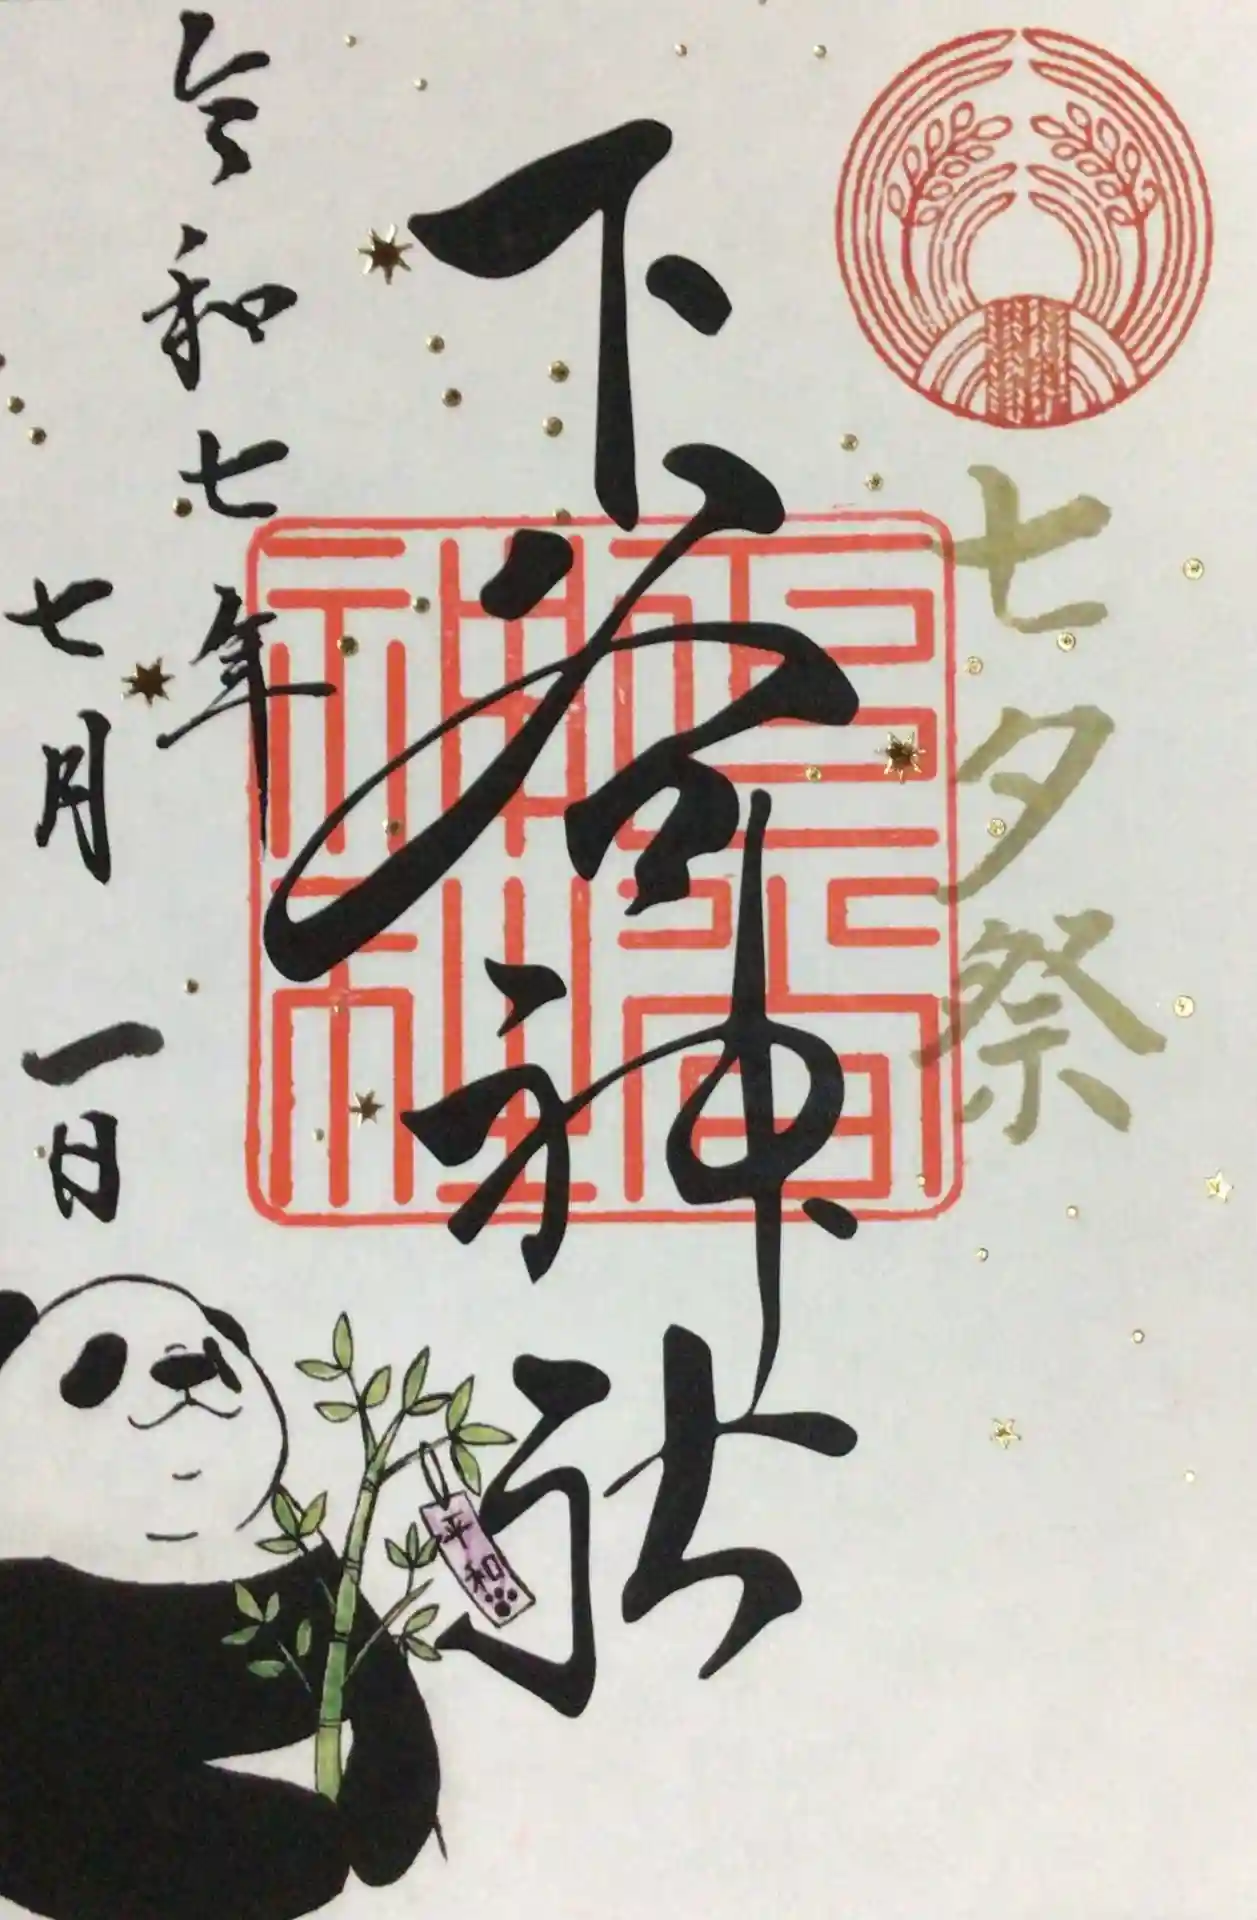 七夕祭
下谷神社
令和七年
七月一日
平和